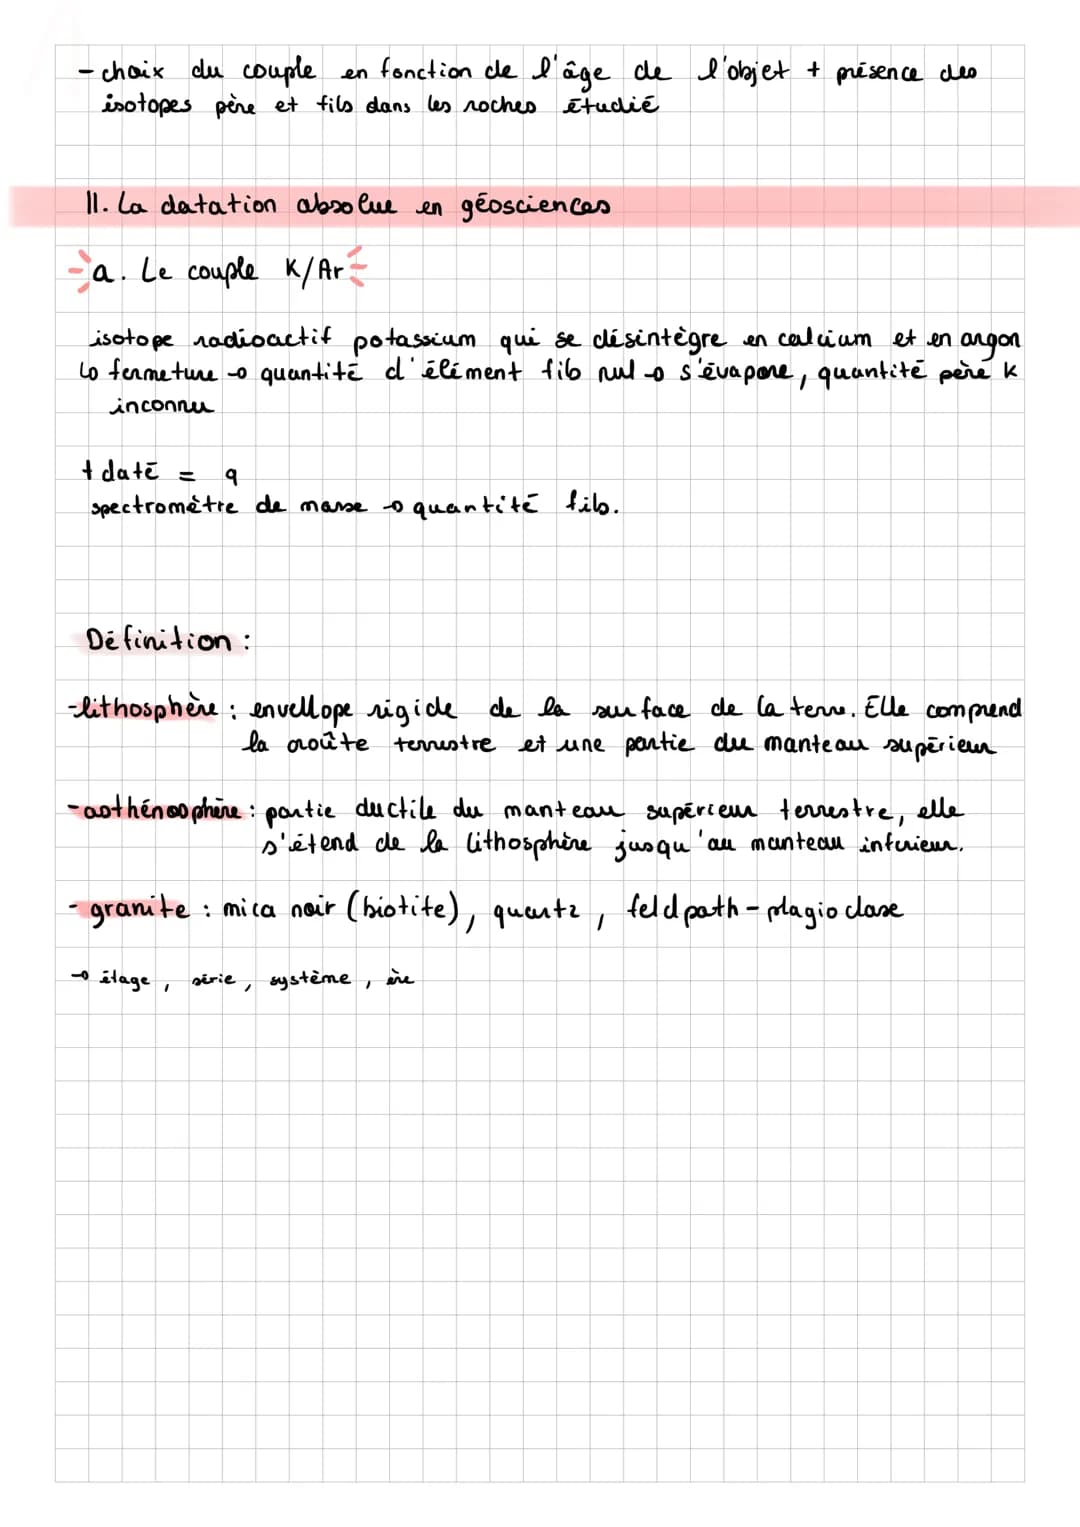 - choix du couple en fonction de l'âge de l'objet + présence des
isotopes père et fils dans les roches étudié
II. La datation absolue en géosciences
a. Le couple K/Ar
isotope radioactif potassium qui se désintègre en calcium et en argon
↳ fermeture → quantité d'élément fils nul → s'évapore, quantité père K
inconnu
t daté = q
spectromètre de masse → quantité fils.
Définition :
- lithosphère : envellope rigide de la surface de la terre. Elle comprend
la croûte terrestre et une partie du manteau supérieur
- asthénosphère : partie ductile du manteau supérieur terrestre, elle
s'étend de la lithosphère jusqu'au manteau inférieur.
- granite : mica noir (biotite), quartz, feldpath - plagioclase
→ étage, série, système, ère